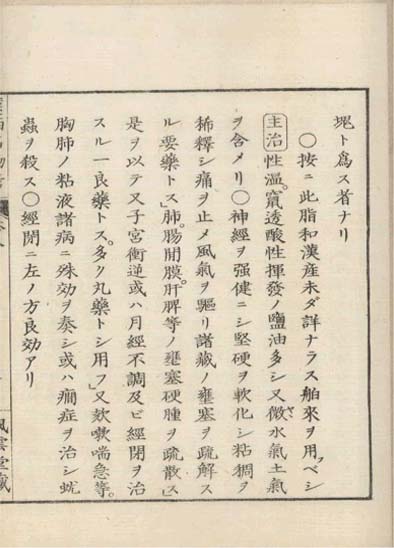 塊ト爲ス者ナリ
○按ニ此脂和漢産未ダ詳ナラス舶來ヲ用フベシ
主治 性溫。竄透酸性揮發ノ鹽油多シ又微水氣土氣
ヲ含メリ○神經ヲ强健ニシ堅硬ヲ軟化シ粘稠ヲ
稀釋シ痛ヲ止メ風氣ヲ驅リ諸藏ノ壅塞ヲ疏解ス
ル要藥トス」肺。腸間膜。肝脾等ノ壅塞硬腫ヲ疏散ス」
是ヲ以テ又子宮衝逆或ハ月經不調及ビ經閉ヲ治
スル一良藥トス。多ク丸藥トシ用フ」又欬嗽喘急等。
胸肺ノ粘液諸病ニ殊効ヲ奏シ或ハ癇症ヲ治シ蚘
蟲ヲ殺ス○經閉ニ左ノ方良効アリ
風雲堂藏